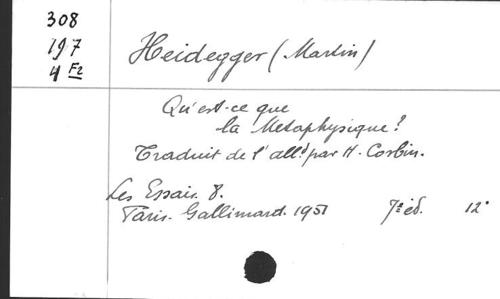 308
197
4 F2
Heidegger (Martin)
Qu'est-ce que
la Métaphysique?
Traduit de l'all.d par H. Corbin.
Les Essais. 8.
Paris. Gallimard. 1951 7e éd. 12°